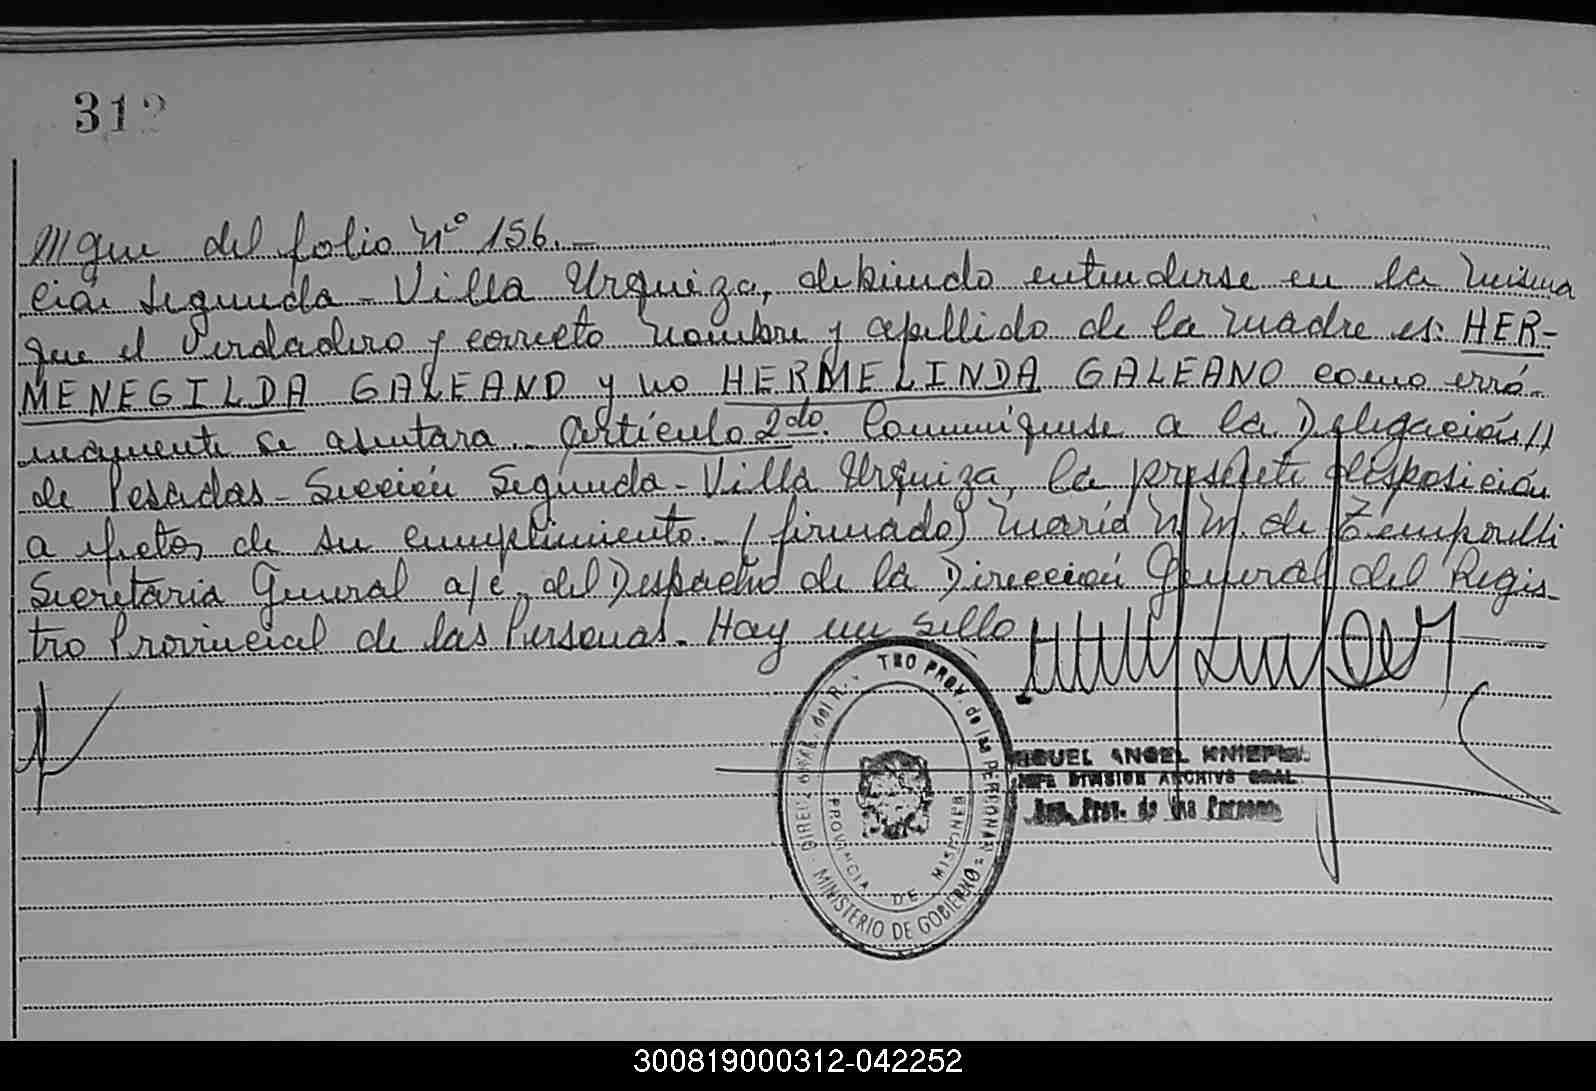 312
///gue del folio Nº 156.-
ción Segunda - Villa Urquiza, debiendo entenderse en la misma
que el verdadero y correcto nombre y apellido de la madre es: HER-
MENEGILDA GALEANO y no HERMELINDA GALEANO como erró-
neamente se asentara.- Artículo 2do. Comuníquese a la Delegación//
de Posadas - Sección Segunda - Villa Urquiza, la presente disposición
a efectos de su cumplimiento.- (firmado) María N. M. de Temporelli
Secretaria General a/c. del Despacho de la Dirección General del Regis-
tro Provincial de las Personas. Hay un sello
TRO PROV. de las PERSONAS
MINISTERIO DE GOBIERNO
PROVINCIA DE MISIONES
MIGUEL ANGEL
JEFE DIVISION ARCHIVO GRAL.
Prov. de las Personas
300819000312-042252